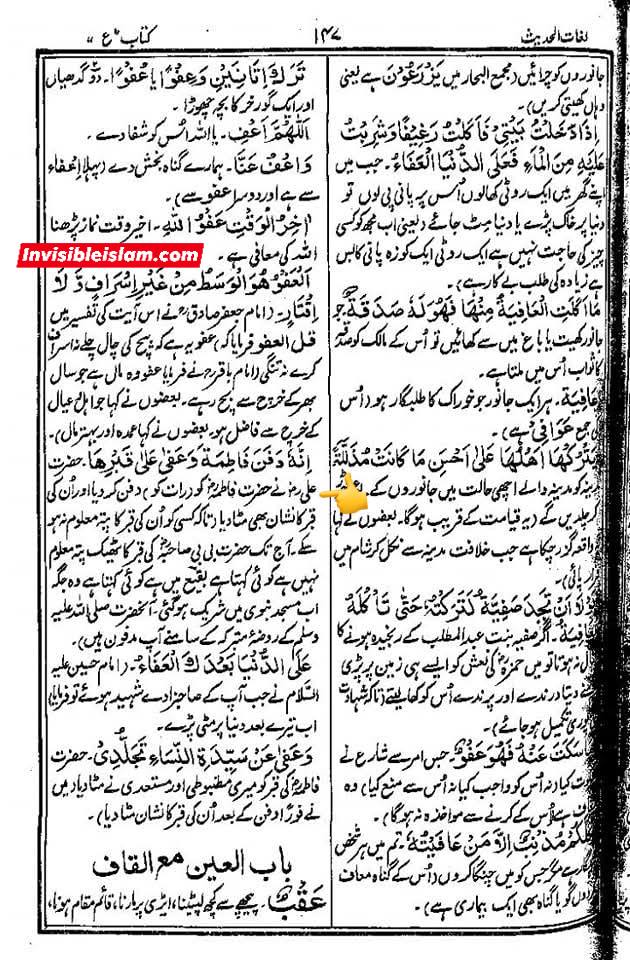 لغات الحدیث
۱۴۷
کتاب "ع"
جانوروں کو چرائیں (مجمع البحار میں یَزْرَعُوْنَ ہے یعنی
وہاں کھیتی کریں)۔
اِذَا دَخَلْتُ بَیْتِیْ فَاَکَلْتُ رَغِیْفًا وَشَرِبْتُ
عَلَیْهِ مِنَ الْمَاءِ فَعَلَی الدُّنْیَا الْعَفَاءُ۔ جب میں
اپنے گھر میں ایک روٹی کھالوں اُس پر پانی پی لوں تو
دنیا پر خاک پڑے یا دنیا مِٹ جائے (یعنی اب مجھ کو کسی
چیز کی حاجت نہیں ہے ایک روٹی ایک کوزہ پانی کا بس
ہے زیادہ کی طلب بے کار ہے)۔
مَا اَکَلَتِ الْعَافِیَةُ مِنْهَا فَهُوَ لَهٗ صَدَقَةٌ۔ جو
جانور کھیت یا باغ میں سے کھائیں تو اُس کے مالک کو صدقہ
کا ثواب اُس میں ملتا ہے۔
عَافِیَة۔ ہر ایک جانور جو خوراک کا طلبگار ہو (اُس
کی جمع عَوَافِیْ ہے)۔
یَتْرُکُهَا اَهْلُهَا عَلٰی اَحْسَنِ مَا کَانَتْ مُذَلَّلَةً
مدینہ کو مدینہ والے اچھی حالت میں جانوروں کے
کر چلدیں گے (یہ قیامت کے قریب ہوگا۔ بعضوں نے کہا
واقعہ گزر چکا ہے جب خلافت مدینہ سے نکل کر شام میں
وَلَا اَنْ تَجِدَ صَفِیَّةُ لَتَرَکْتُهٗ حَتّٰی تَاْکُلَهُ
الْعَافِیَةُ۔ اگر صفیہ بنت عبدالمطلب کے رنجیدہ ہونے کا
خیال نہ ہوتا تو میں حمزہ کی نعش کو ایسے ہی زمین پر پڑی
رہنے دیتا درندے اور پرندے اُس کو کھا لیتے (تاکہ شہادت
پوری تکمیل ہو جائے)۔
مَا سَکَتَ عَنْهُ فَهُوَ عَفْوٌ۔ جس امر سے شارع نے
سکوت کیا نہ اُس کو واجب کیا نہ اُس سے منع کیا) وہ
معاف ہے (اُس کے کرنے سے مواخذہ نہ ہوگا)۔
کُلُّکُمْ مُذْنِبٌ اِلَّا مَنْ عَافَیْتُهٗ۔ تم میں ہر شخص
ہے مگر جس کو میں چنگا کروں (اُس کے گناہ معاف
کردوں گویا گناہ بھی ایک بیماری ہے)۔
تَرَكَ اَتَانَیْنِ وَعِفْوًا یا عُفْوًا۔ دو گدھیاں
اور ایک گورخر کا بچہ چھوڑا۔
اَللّٰهُمَّ اعْفِ۔ یا اللہ اُس کو شفا دے۔
وَاعْفُ عَنَّا۔ ہمارے گناہ بخش دے (پہلا اِعْفَاء
سے ہے اور دوسرا عفو سے)۔
اٰخِرُ الْوَقْتِ عَفْوُ اللّٰهِ۔ اخیر وقت نماز پڑھنا
اللہ کی معافی ہے۔
Invisibleislam.com
اَلْعَفْوُ هُوَ الْوَسَطُ مِنْ غَیْرِ اِسْرَافٍ وَّلَا
اِقْتَارٍ۔ (امام جعفر صادق نے اس آیت کی تفسیر میں
قل العفو فرمایا کہ) عفو یہ ہے کہ بیچ کی چال چلے نہ اسراف
کرے نہ تنگی (امام باقر نے فرمایا عفو وہ مال ہے جو سال
بھر کے خرچ سے بچ رہے۔ بعضوں نے کہا جو اہل عیال
کے خرچ سے فاضل ہو۔ بعضوں نے کہا عمدہ اور بہتر مال)۔
اِنَّهٗ دَفَنَ فَاطِمَةَ وَعَفٰی عَلٰی قَبْرِهَا۔ حضرت
علی نے حضرت فاطمہ کو (رات کو) دفن کر دیا اور اُن کی
قبر کا نشان بھی مٹا دیا (تاکہ کسی کو اُن کی قبر کا پتہ معلوم نہ ہو
سکے۔ آج تک حضرت بی بی صاحبہ کی قبر کا ٹھیک پتہ معلوم
نہیں ہے کوئی کہتا ہے بقیع میں ہے کوئی کہتا ہے وہ جگہ
اب مسجد نبوی میں شریک ہوگئی آنحضرت صلی اللہ علیہ
وسلم کے روضۂ متبرکہ کے سامنے آپ مدفون ہیں)۔
عَلَی الدُّنْیَا بَعْدَكَ الْعَفَاءُ۔ (امام حسین علیہ
السلام نے جب آپ کے صاحبزادے شہید ہوئے تو فرمایا)
اب تیرے بعد دنیا پر مٹی پڑے۔
وَعَفٰی عَنْ سَیِّدَةِ النِّسَاءِ تَجَلُّدِیْ۔ حضرت
فاطمہ کی قبر کو میری مضبوطی اور مستعدی نے مٹا دیا (میں
نے فوراً دفن کے بعد اُن کی قبر کا نشان مٹا دیا)۔
باب العین مع القاف
عَقْبٌ۔ پیچھے سے کچھ لپیٹنا، ایڑی پر مارنا، قائم مقام ہونا،